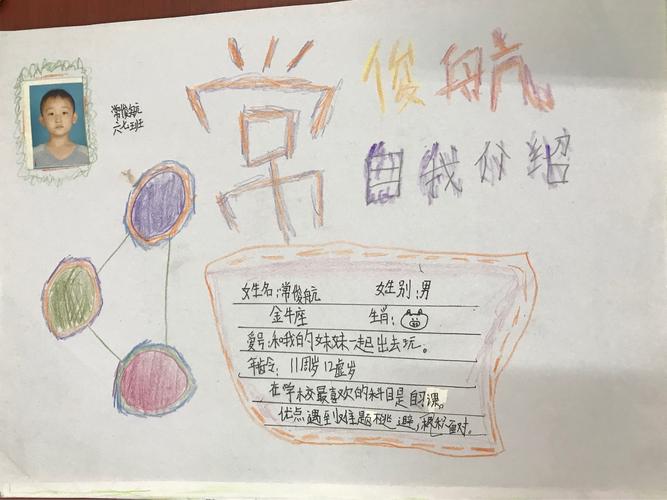 常俊航
自我介绍
常俊航
六七班
姓名:常俊航 性别:男
金牛座 生肖:
爱号:和我的妹妹一起出去玩。
年龄:11周岁12虚岁
在学校最喜欢的科目是 课。
优点遇到难题 避,积极面对。